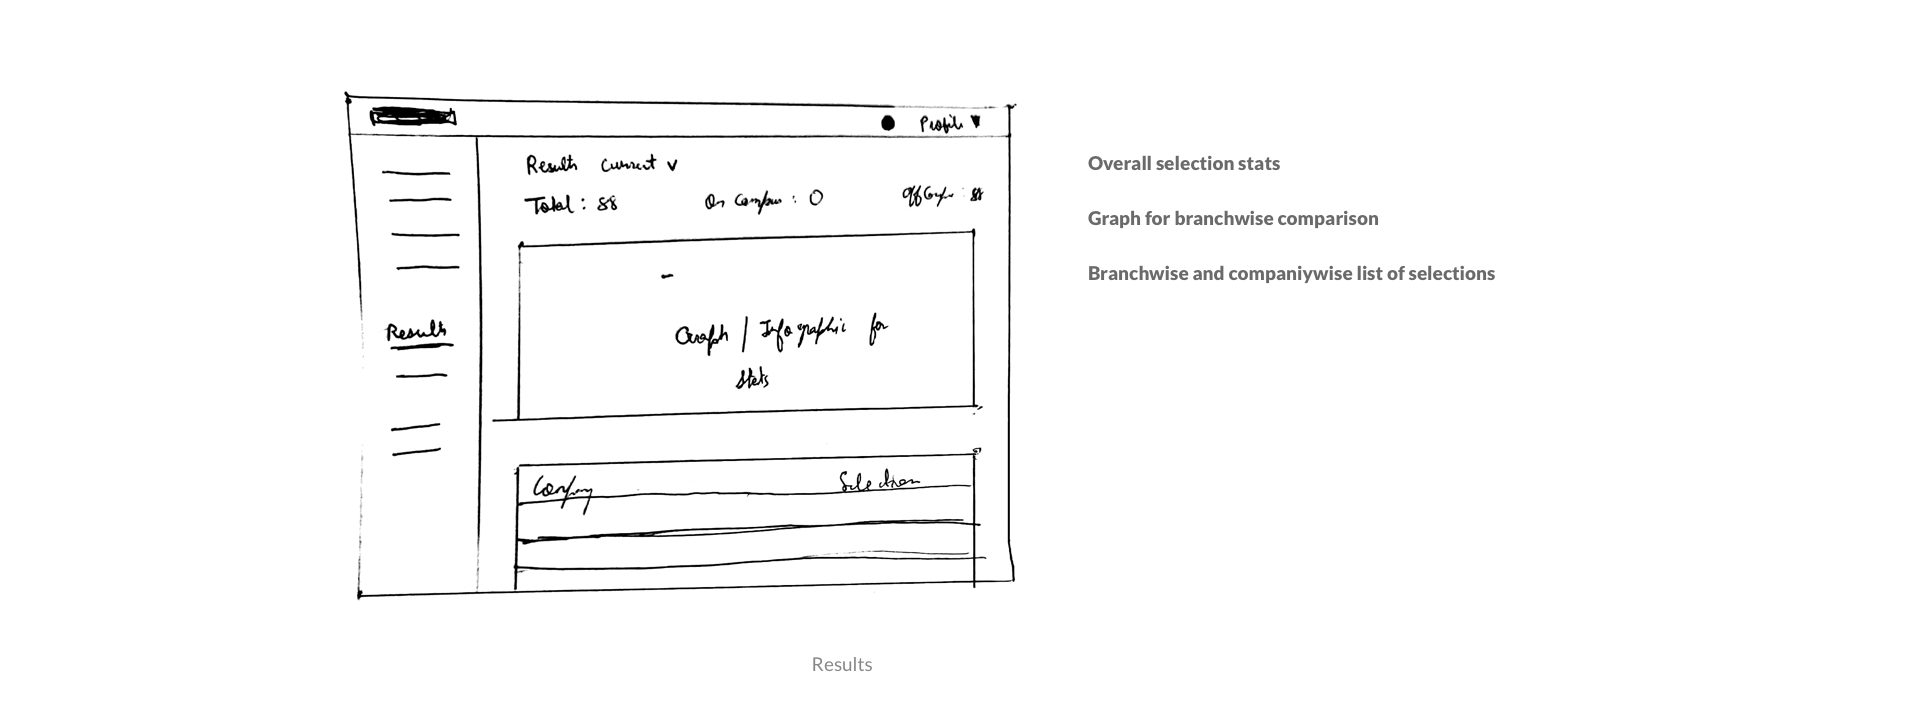 Profile
Results Current
Total : 88 On Campus : 0 Off Camps : 88
Results
Graph / Infographic for
stats
Company Selection
Overall selection stats
Graph for branchwise comparison
Branchwise and companiywise list of selections
Results